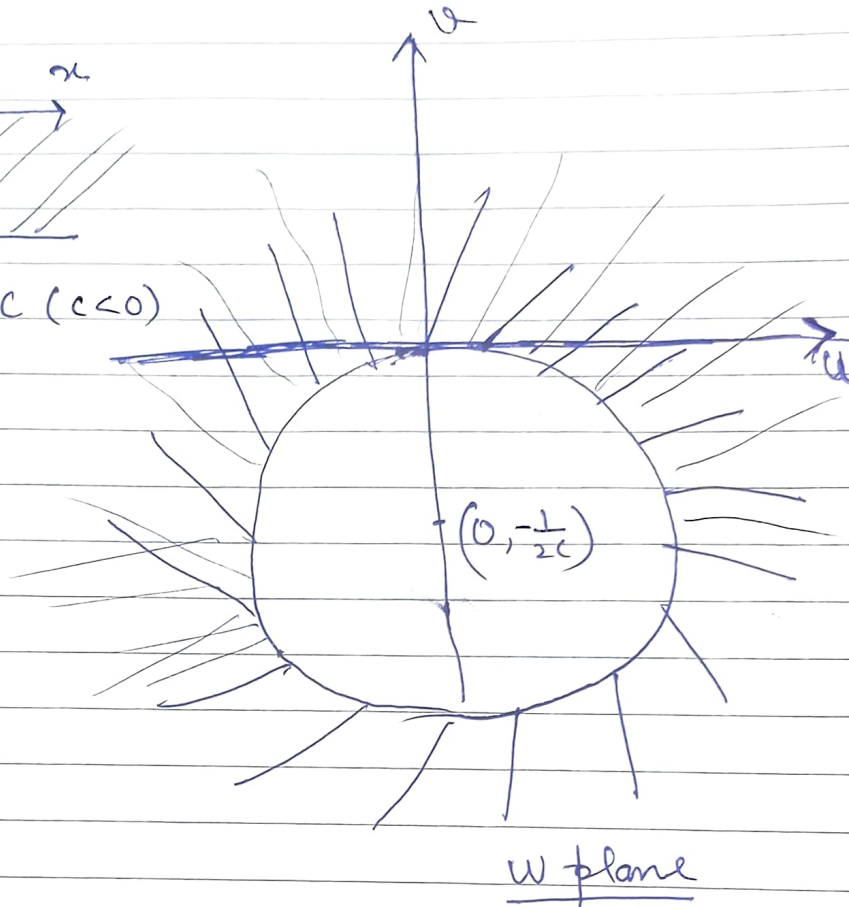 v
x
C (C<0)
u
(0, -1/2C)
w plane